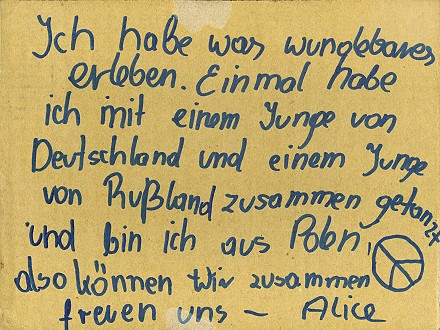 Ich habe was wunglebares
erleben. Einmal habe
ich mit einem Junge von
Deutschland und einem Junge
von Rußland zusammen getanzt
und bin ich aus Polen,
also können wir zusammen
freuen uns – Alice